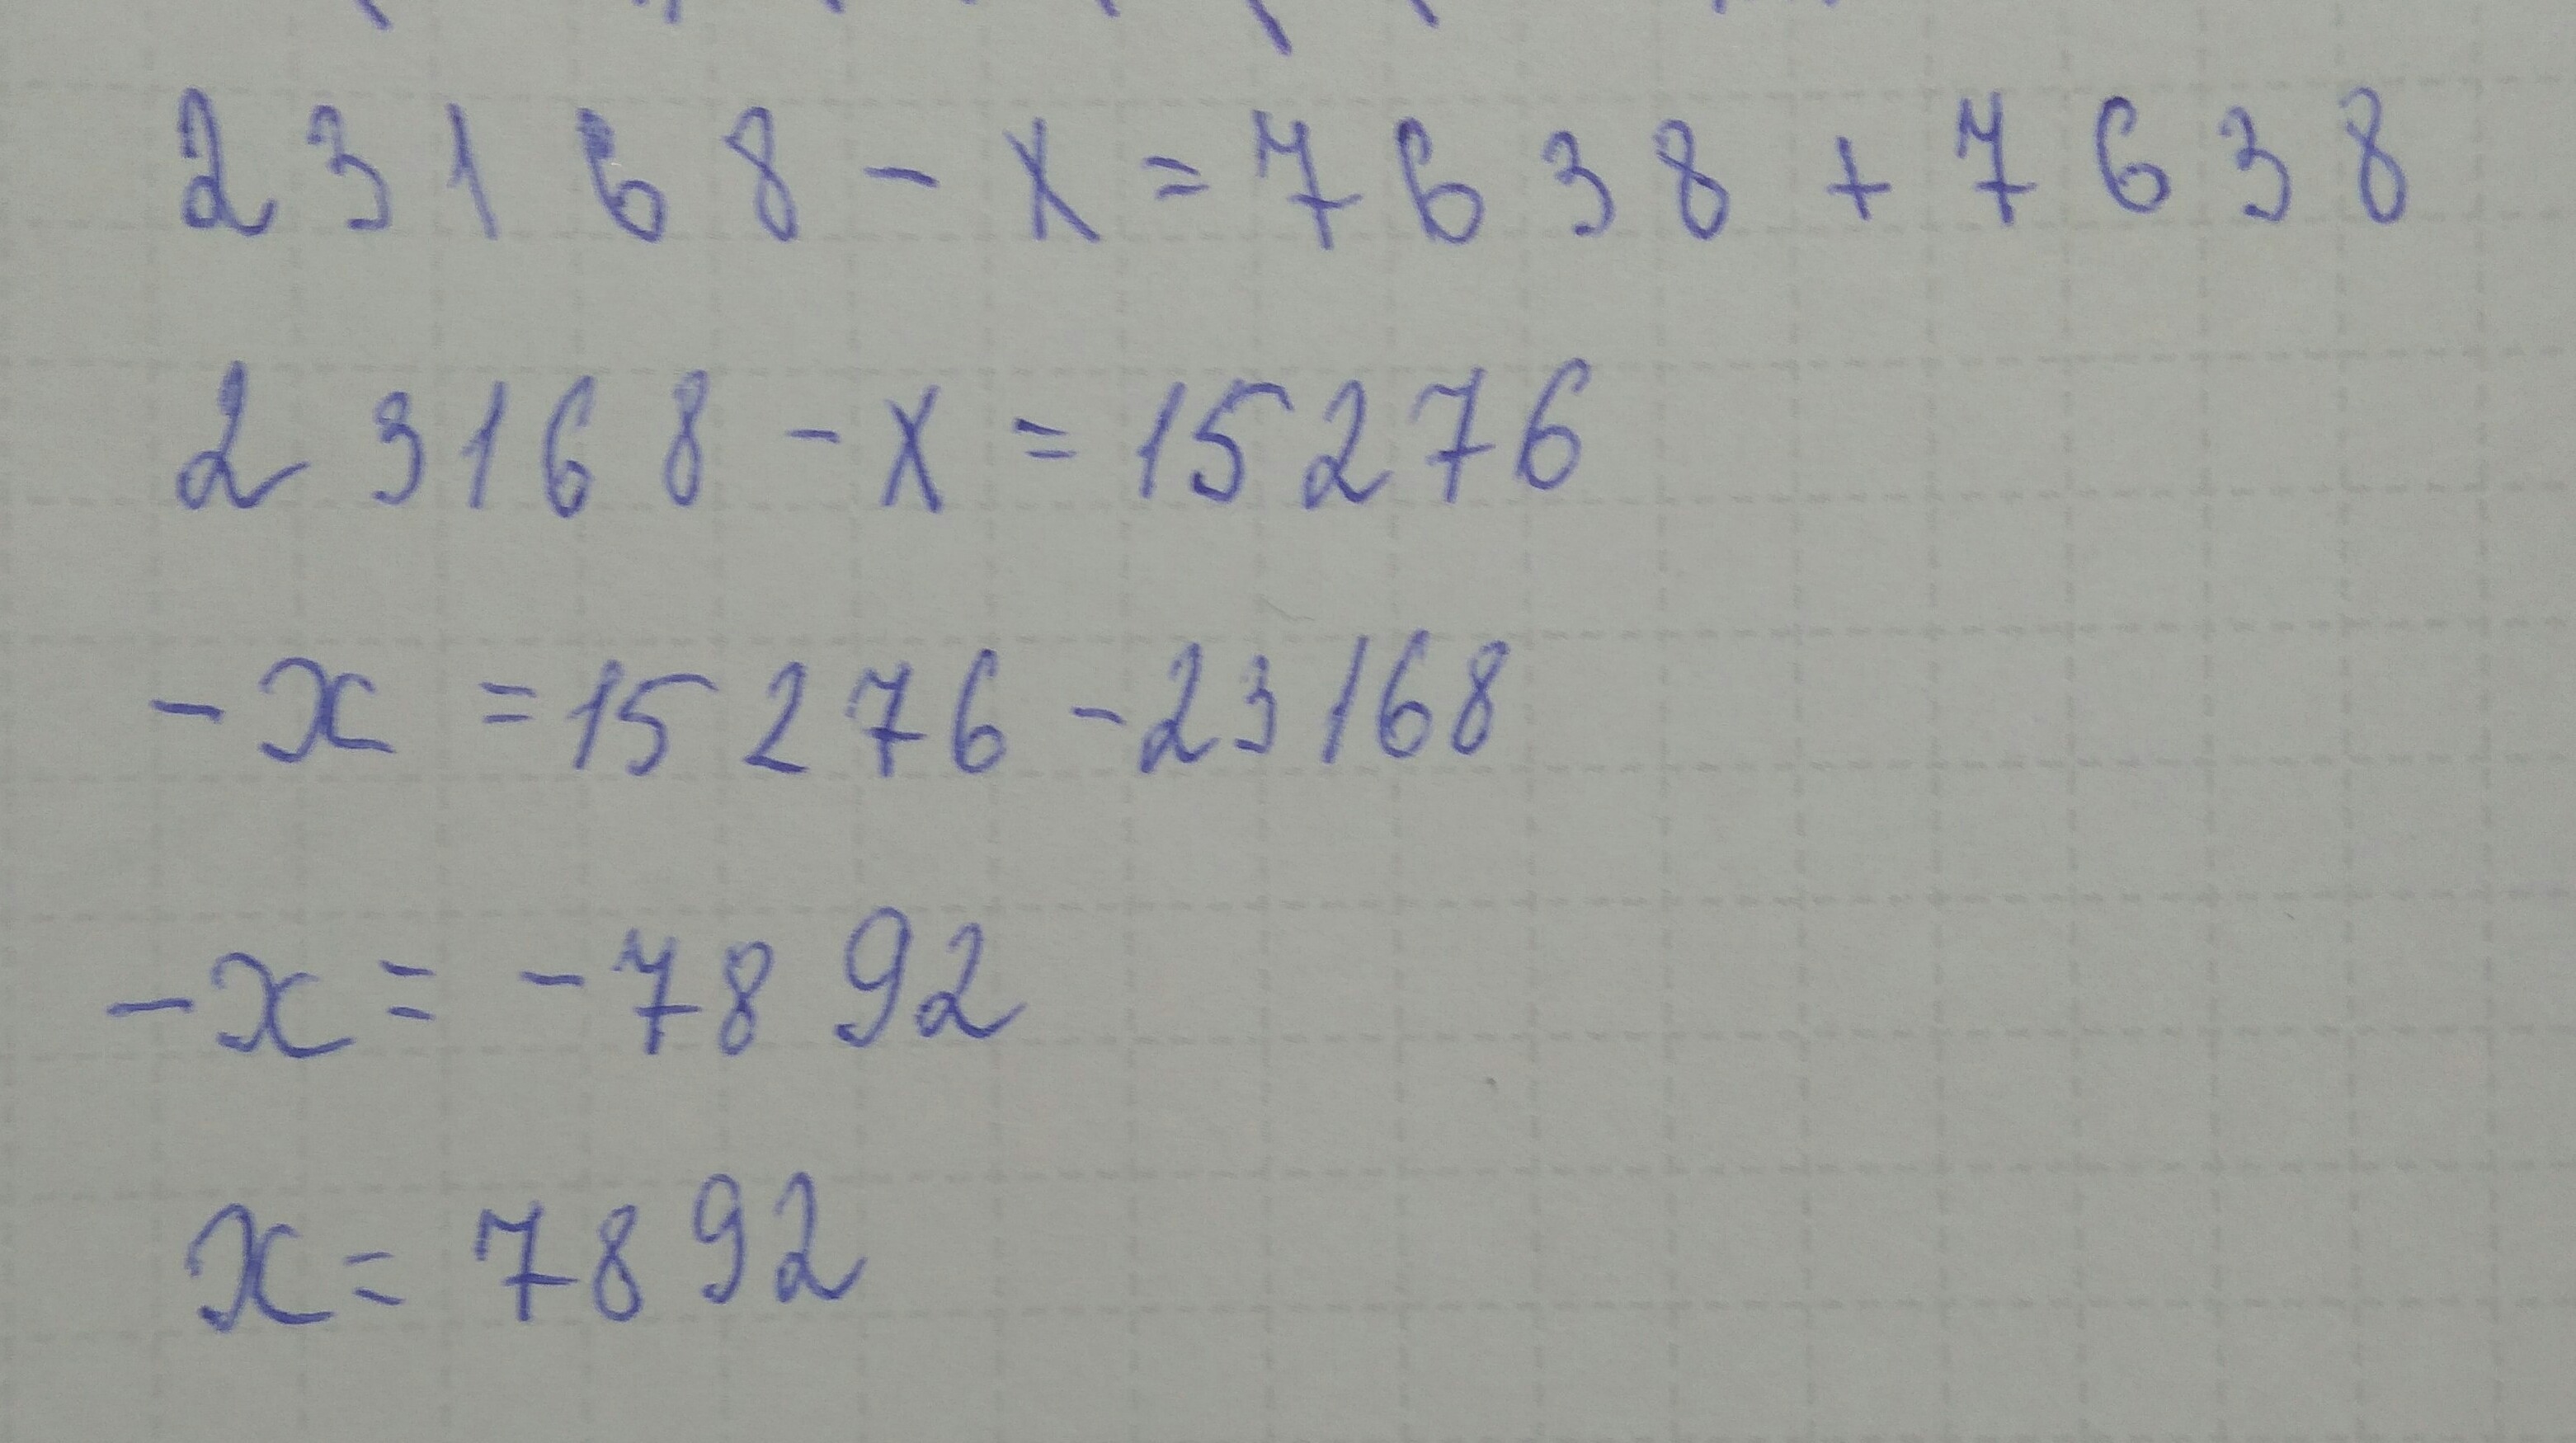 23168 - x = 7638 + 7638
23168 - x = 15276
-x = 15276 - 23168
-x = -7892
x = 7892